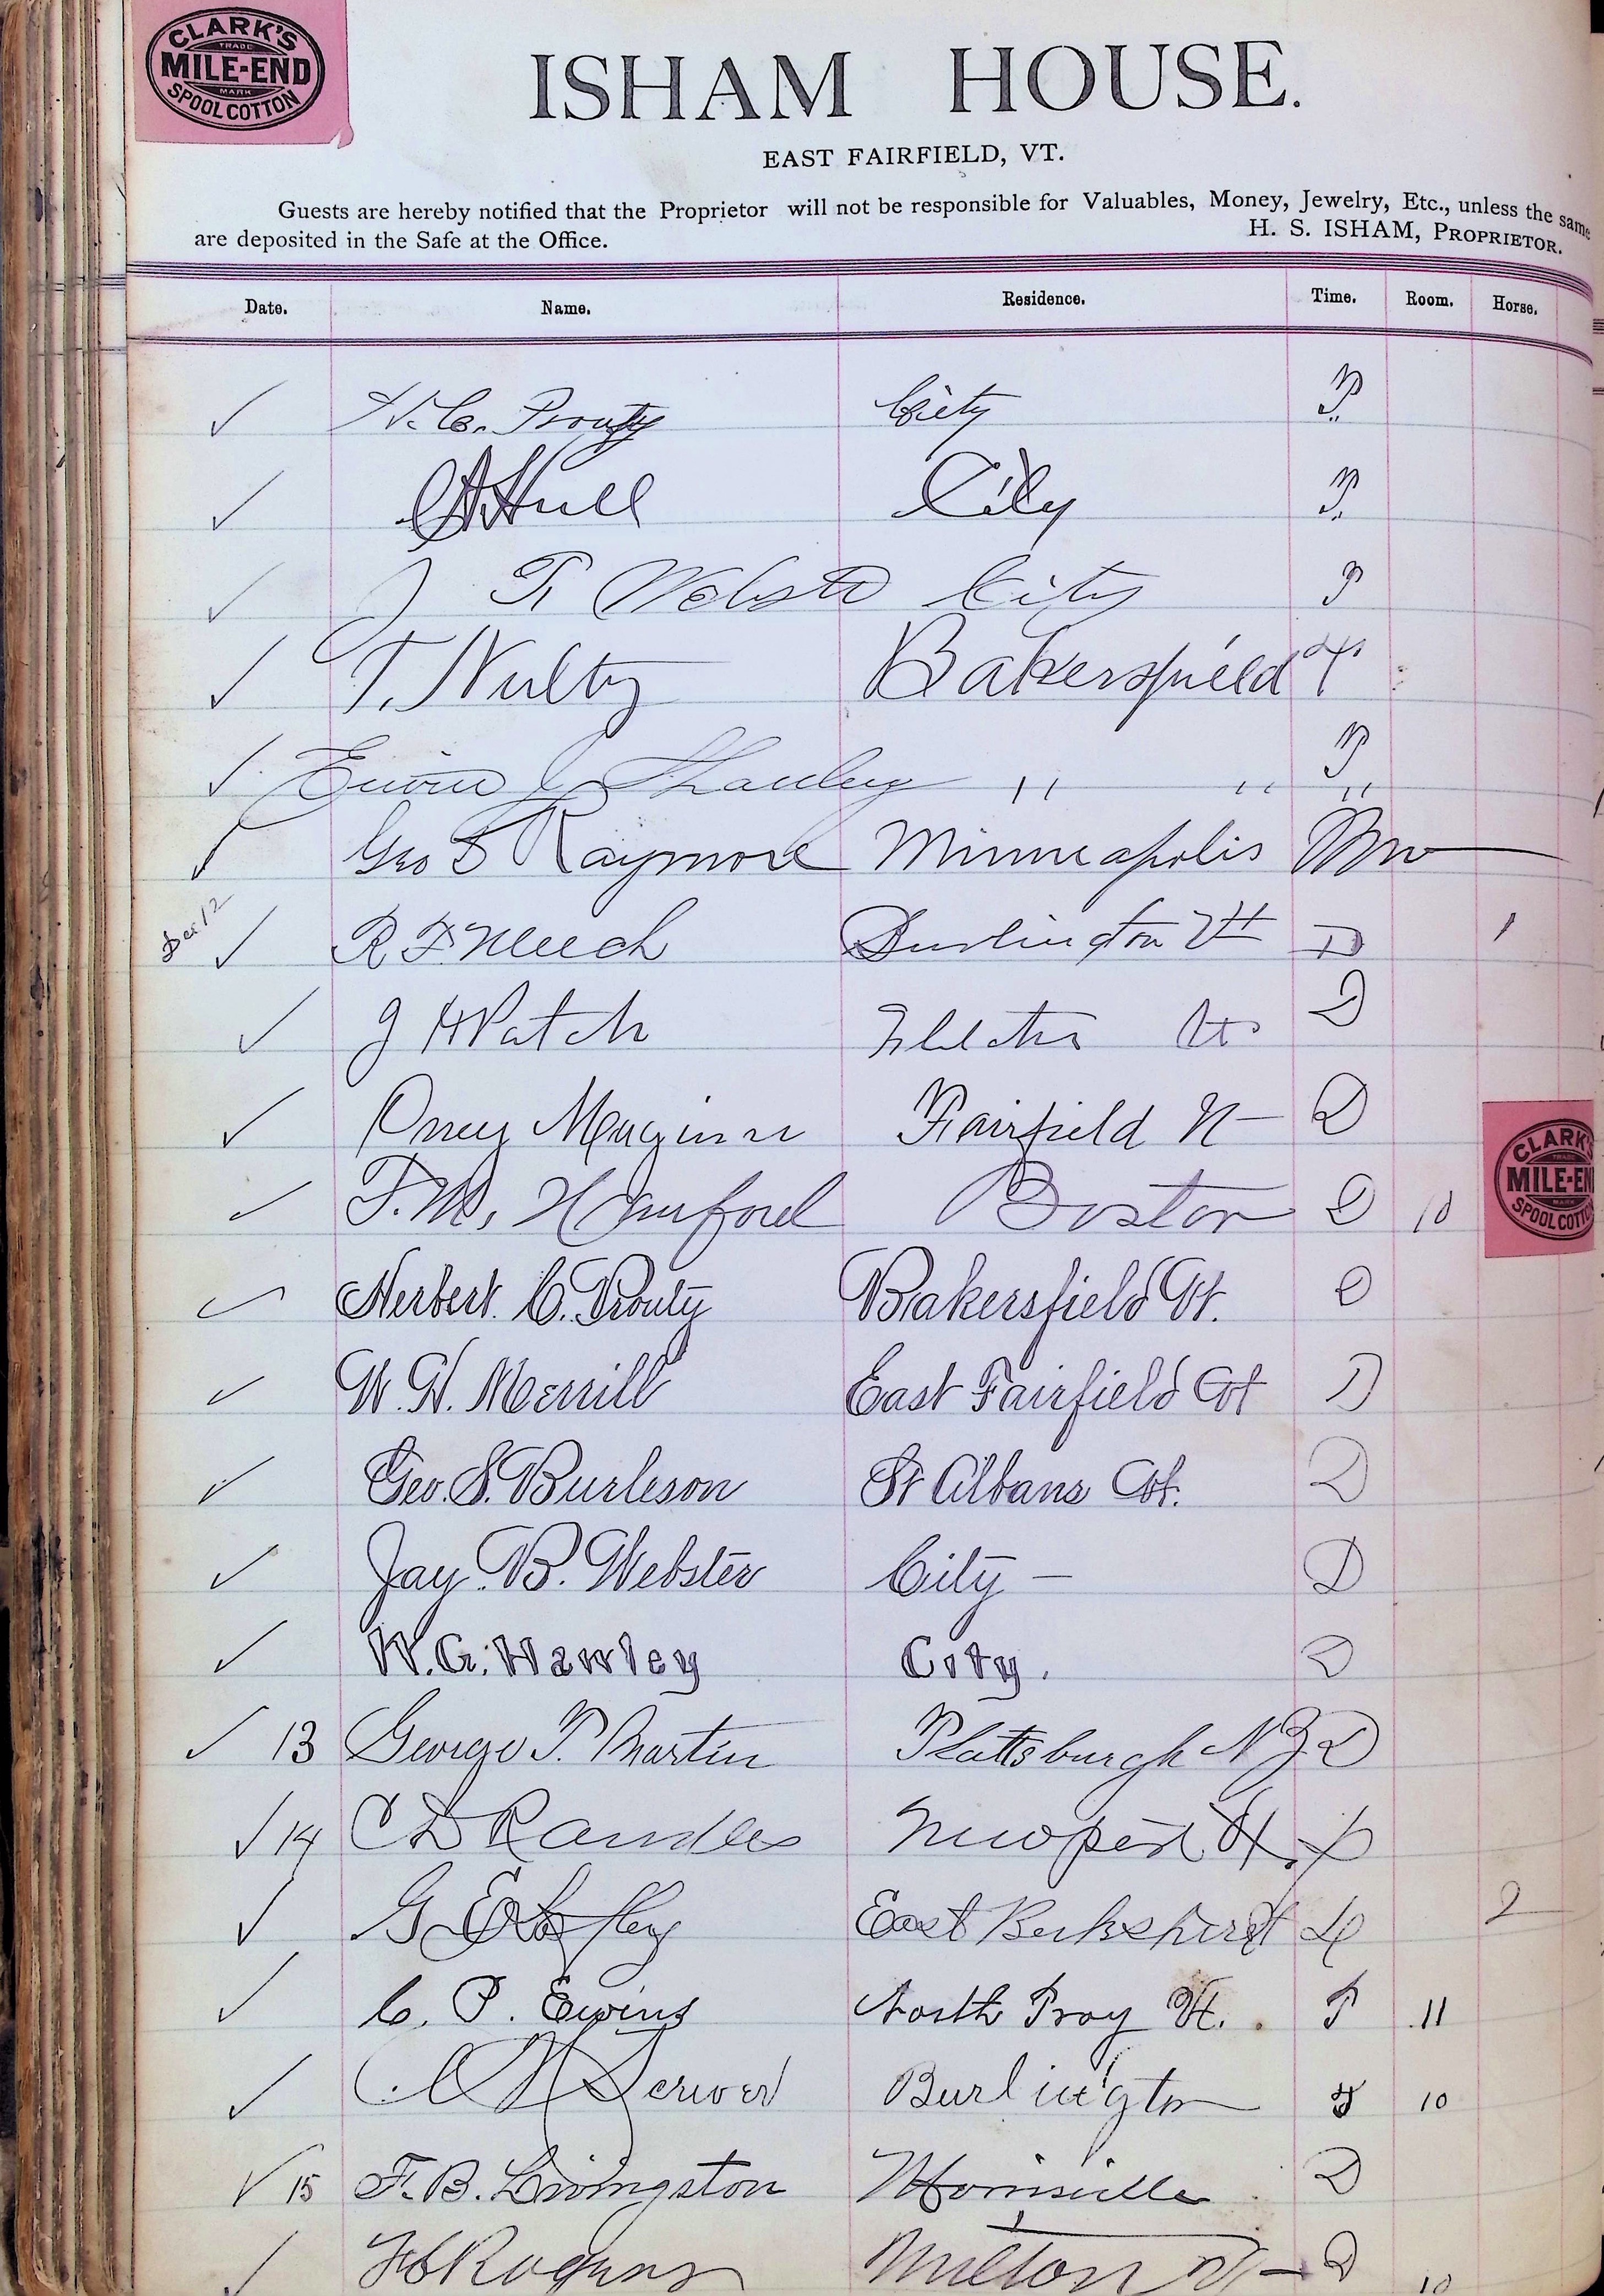 CLARK'S
TRADE
MILE-END
MARK
SPOOL COTTON
ISHAM HOUSE.
EAST FAIRFIELD, VT.
Guests are hereby notified that the Proprietor will not be responsible for Valuables, Money, Jewelry, Etc., unless the same
are deposited in the Safe at the Office.
H. S. ISHAM, PROPRIETOR.
Date. Name. Residence. Time. Room. Horse.
H. C. Prouty City
Hull City
J T Webster City
T. Nulty Bakersfield
Erwin J Shanley " " "
Geo S Raymore Minneapolis Mn
Dec 12 R F Meech Burlington Vt D 1
J H Patch Vt D
Fairfield Vt D
F. M. Hanford Boston D 10
CLARK'S
MILE-EN
SPOOL COTTO
Herbert C. Prouty Bakersfield Vt. D
W. H. Merrill East Fairfield Vt D
Geo. S. Burleson St Albans Vt. D
Jay. B. Webster City — D
W. G. Hawley City. D
13 George T. Martin Plattsburgh N Y D
14 C D Randles Newport Vt
East Berkshire Vt 2
C. P. Ewins North Troy Vt. 11
Scriver Burlington 10
15 F. B. Livingston Morrisville D
Rogers Milton Vt D 10